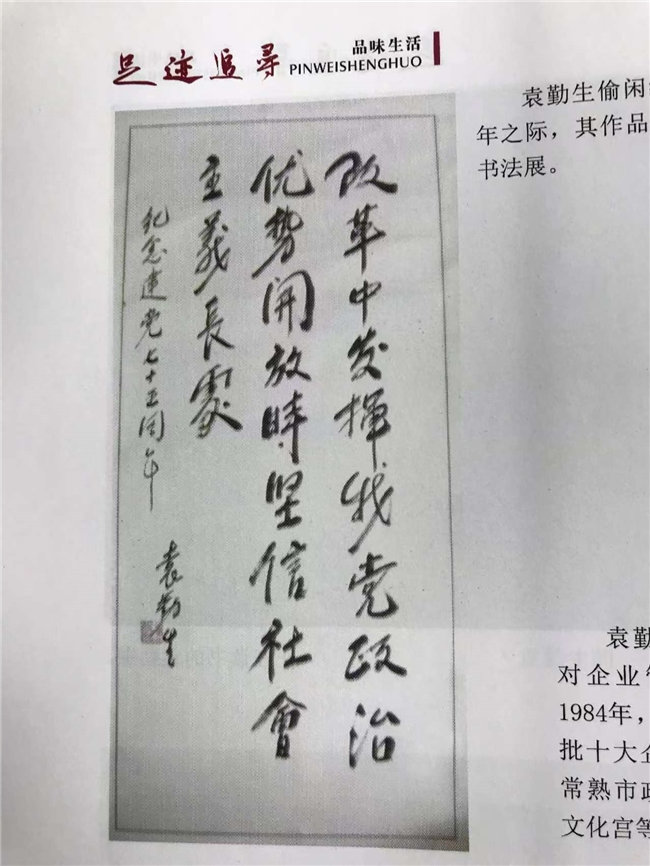 足迹追寻
品味生活
PINWEISHENGHUO
改革中发挥我党政治
优势開放時坚信社會
主義長處
纪念建党七十五周年
袁勤生
袁勤生偷闲
年之际，其作品
书法展。
袁勤
对企业
1984年，
批十大企
常熟市政
文化宫等